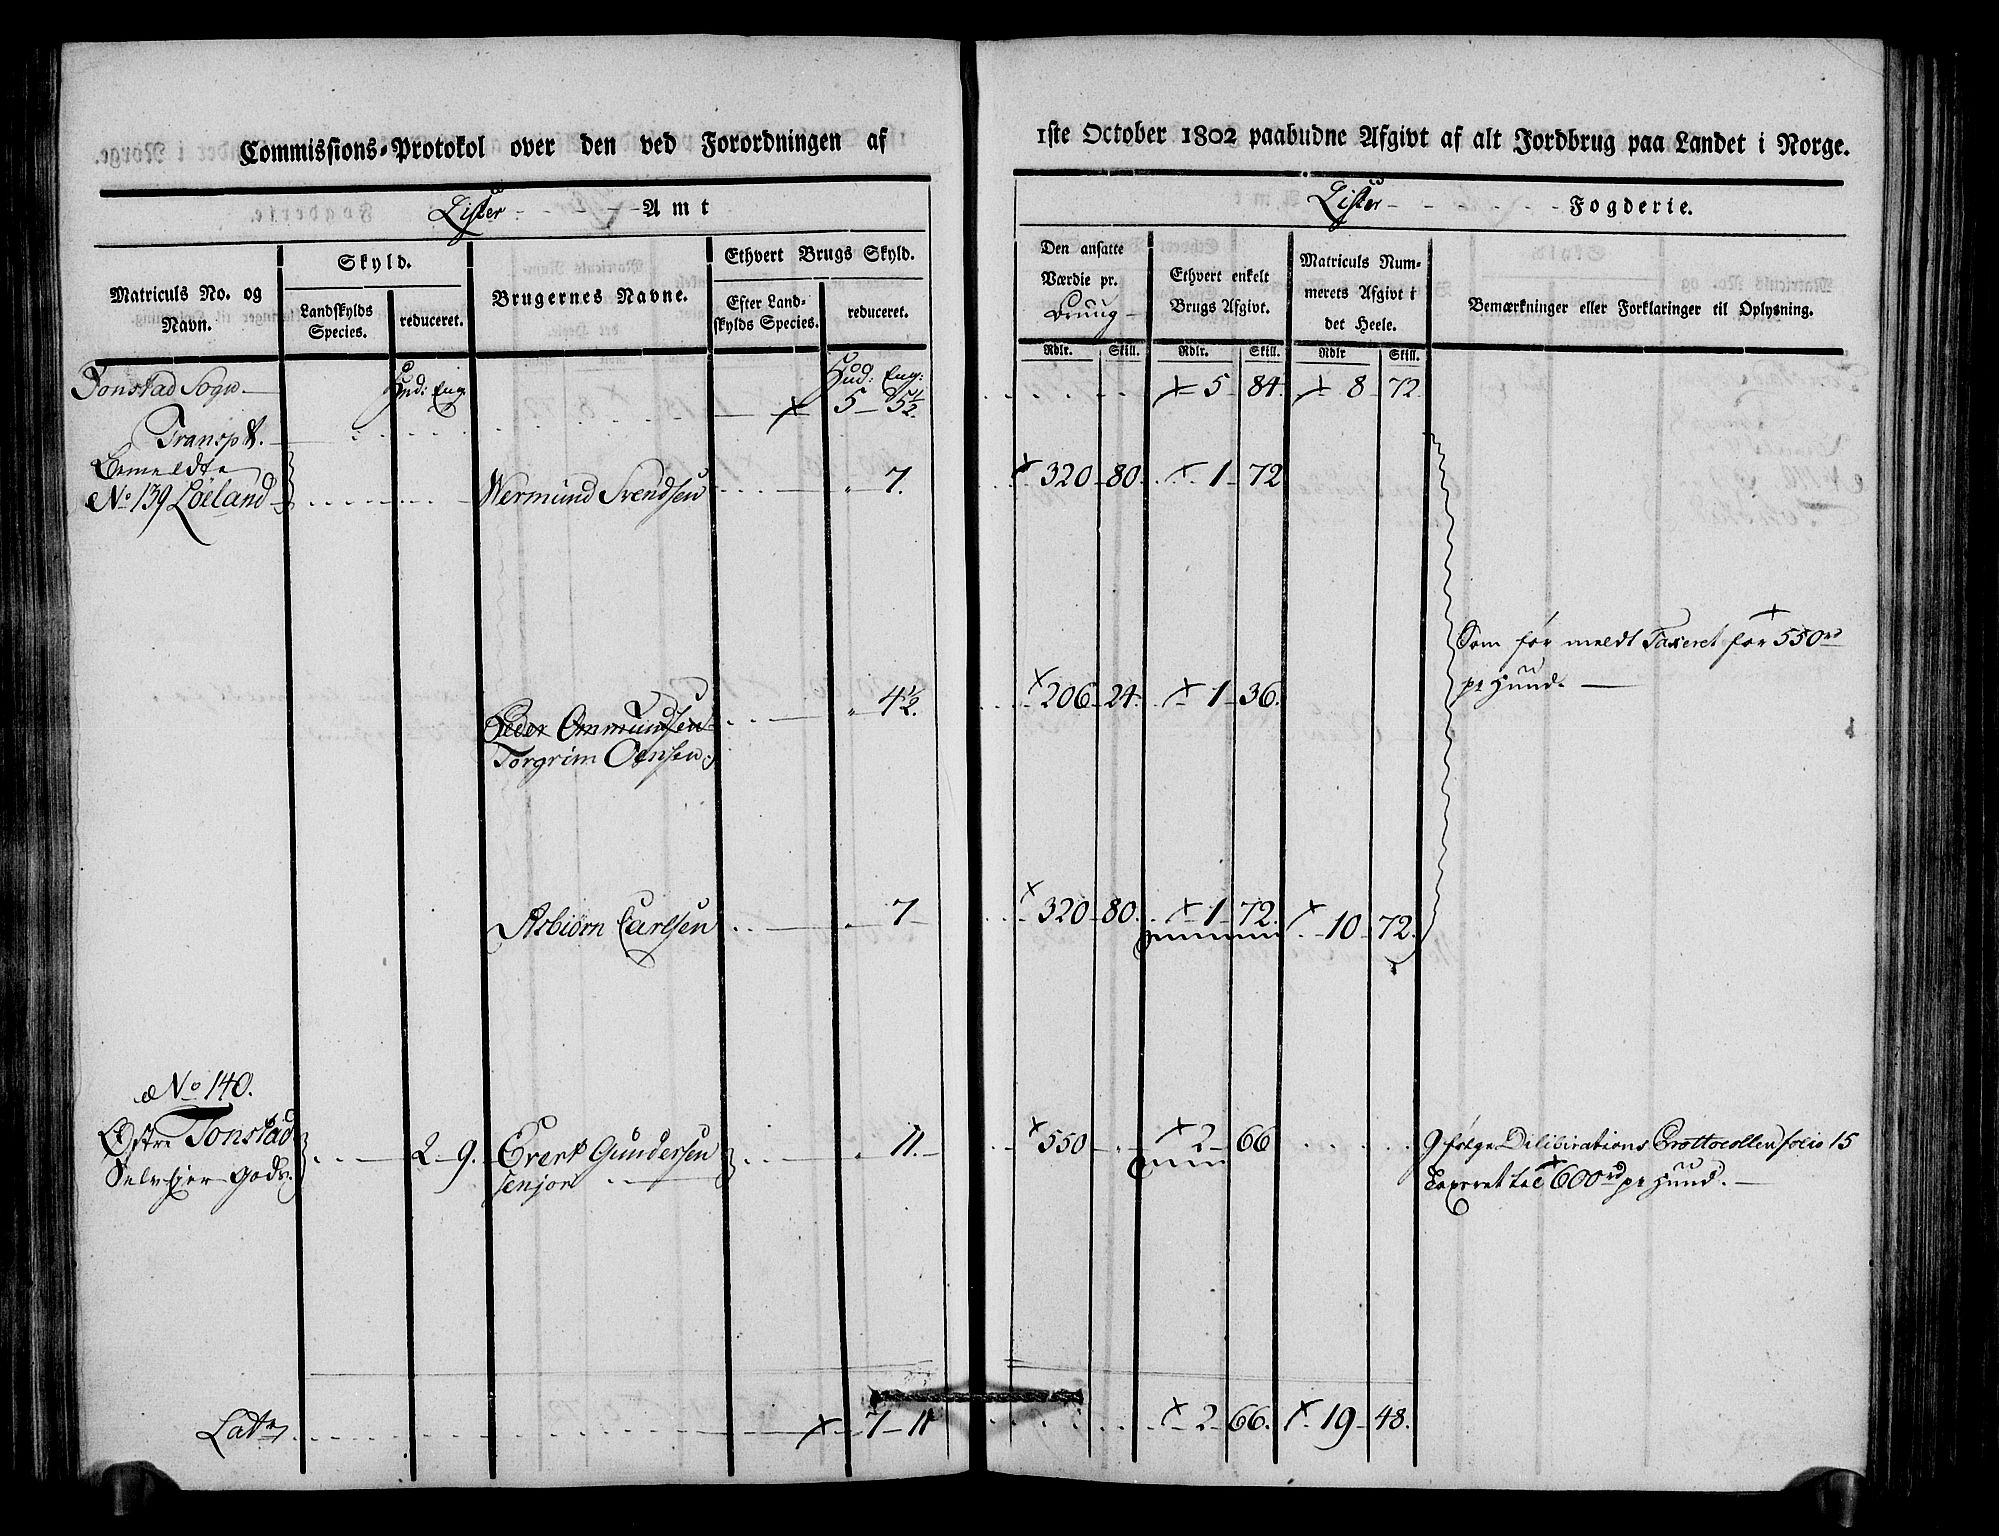 Commissions-Protokol over den ved Forordningen af
1ste October 1802 paabudne Afgivt af alt Jordbrug paa Landet i Norge.
Lister Amt
Lister Fogderie.
Matriculs No. og Navn.
Skyld.
Landskylds Species.
reduceret.
Brugernes Navne.
Ethvert Brugs Skyld.
Efter Landskylds Species.
reduceret.
Den ansatte Værdie pr.
Bruug
Ethvert enkelt Brugs Afgivt.
Matriculs Nummerets Afgivt i det Heele.
Bemærkninger eller Forklaringer til Oplysning.
Rdlr. Skill. Rdlr. Skill. Rdlr Skill.
Tonstad Sogn Hud: Eng Hud: Eng:
Transpt. x 5 - 5 1/2. x 5 84. x 8 72.
Bemeldte
No 139 Löeland Wermund Svendsen " 7. x 320 - 80. x 1 - 72
Som för meldt Taxeret for x 550 rd
pr Hund.
Peder Ommundsen " 4 1/2. x 206 - 24. x 1 - 36.
Torgrim Oensen
Asbiörn Carlsen " 7 - x 320 - 80. x 1 - 72. x 10 - 72.
No 140.
Östre Tonstad 2 - 9. Evert Gundersen " 11. x 550 x 2 - 66
Selveyer Gods. senjor
I fölge Deliberations Prottocollen folio 15
Taxeret til x 600 rd pr Hund.
Latr x 7 - 11 x 2 - 66. x 19 - 48.